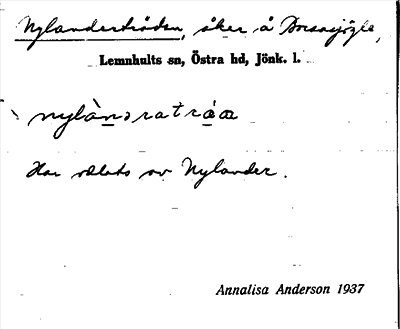 Nylanderträdan, åker å Dravasjögle,
Lemnhults sn, Östra hd, Jönk. l.
nylànɔratráa
Har välats av Nylander.
Annalisa Anderson 1937